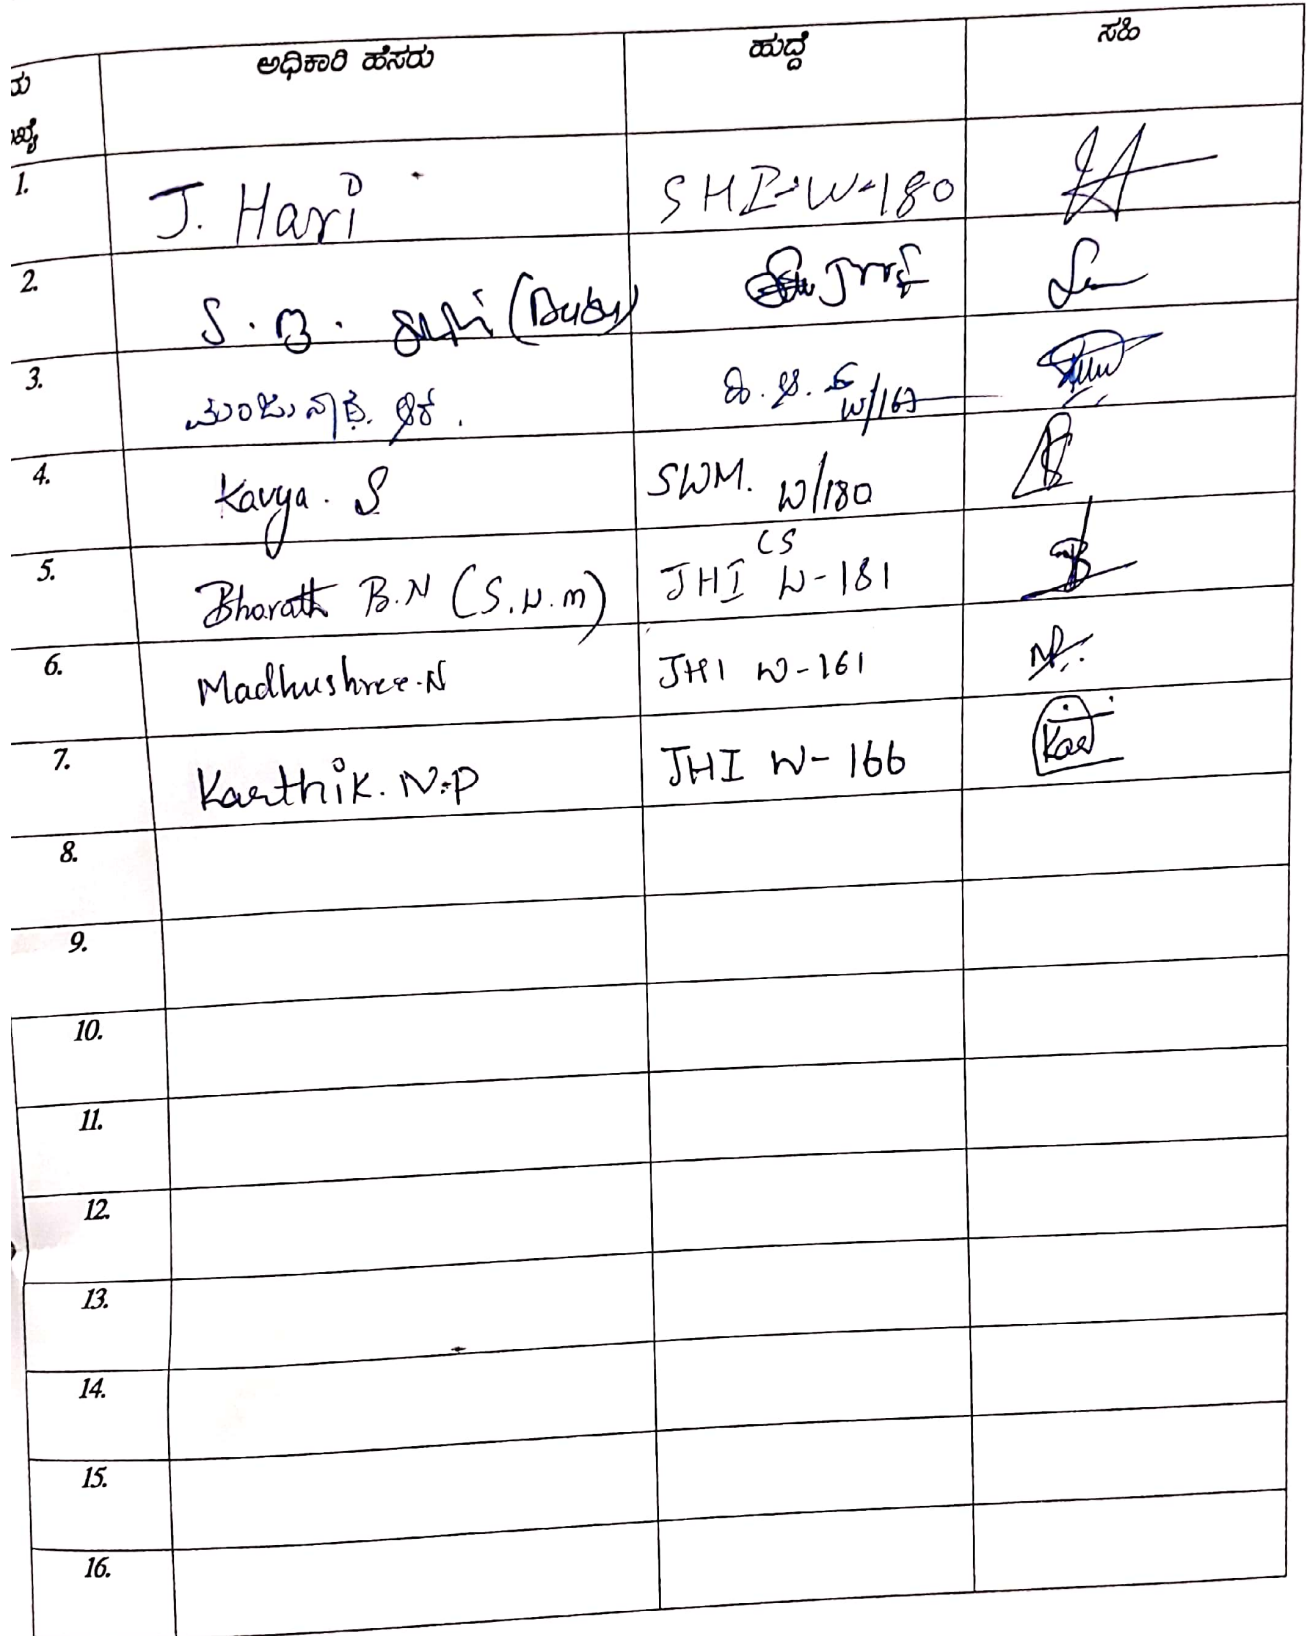 ಅಧಿಕಾರಿ ಹೆಸರು ಹುದ್ದೆ ಸಹಿ
1. J. Hari SHI-W-180
2. S.B.
3. ಮಂಜುನಾಥ. ಆರ್. W/167
4. Kavya. S SWM. W/180
CS
5. Bharath B.N (S.W.m) JHI W-181
6. Madhushree.N JHI W-161
7. Karthik. N.P JHI W-166
8.
9.
10.
11.
12.
13.
14.
15.
16.